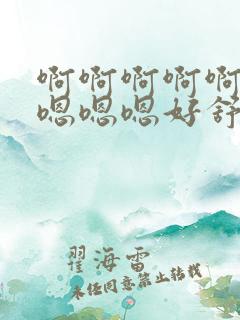 啊啊啊啊啊
嗯嗯嗯好舒
翟海雷
未经同意禁止转载